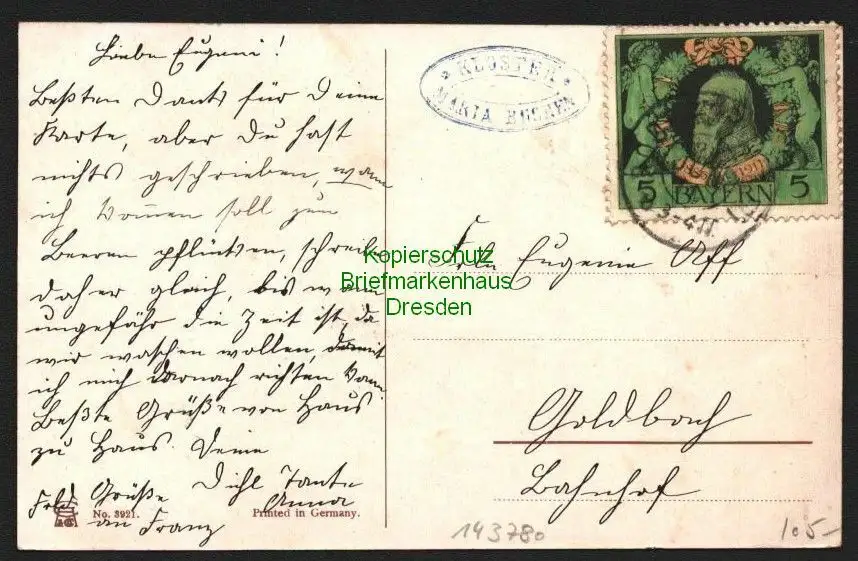 Liebe Eugenie!
Besten Dank für Deine
Karte, aber Du hast
nichts geschrieben, wann
ich kommen soll zum
Beeren pflücken, schreib
daher gleich, bis wann
ungefähr die Zeit ist, da
wir waschen wollen, damit
ich mich darnach richten kann
Beste Grüße von Haus
zu Haus. Deine
Dich Tante
Anna
Grüße
an Franz
No. 3921.
Printed in Germany.
KLOSTER
MARIA BUCHEN
1911
5 BAYERN 5
Frln Eugenie Off
Goldbach
Bahnhof
Kopierschutz
Briefmarkenhaus
Dresden
143780
105-